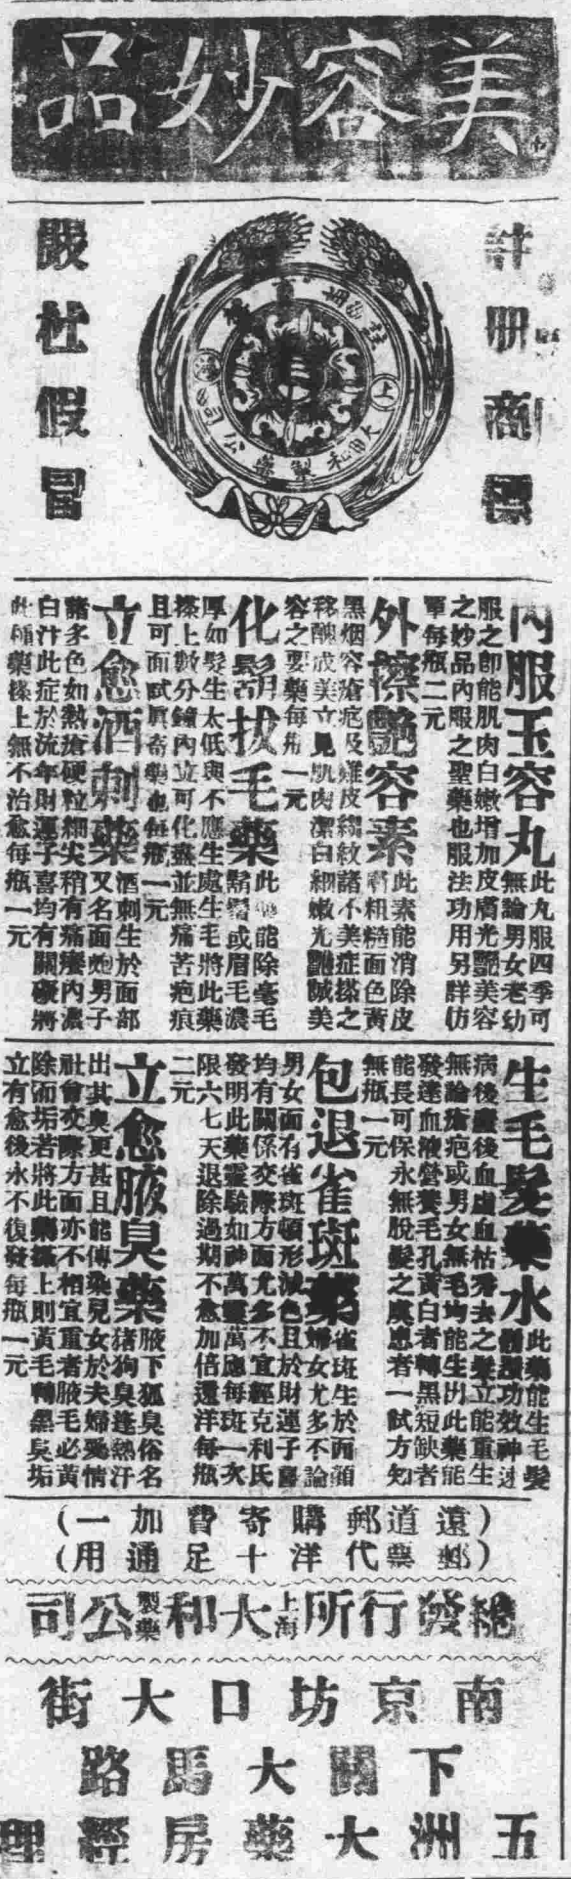 美容妙品
註冊商標
嚴杜假冒
上海
大和製藥公司
內服玉容丸
此丸服四季可
無論男女老幼
服之即能肌肉白嫩增加皮膚光艷美容
之妙品內服之聖藥也服法功用另詳仿
單每瓶二元
外擦艷容素
此素能消除皮
膚粗糙面色黃
黑烟容瘡疤及雞皮縐紋諸不美症搽之
移醜成美立見肌肉潔白細嫩光艷誠美
容之要藥每瓶一元
化鬍拔毛藥
此藥能除毫毛
鬍鬚或眉毛濃
厚如髮生太低與不應生處生毛將此藥
搽上數分鐘內立可化盡並無痛苦疤痕
且可面試眞奇藥也每瓶一元
立愈酒刺藥
酒刺生於面部
又名面皰男子
諸多色如熱瘡硬粒細尖稍有痛癢內濃
白汁此症於流年財運子喜均有關礙將
此種藥搽上無不治愈每瓶一元
生毛髮藥水
此藥能生毛髮
功效神速
病後產後血虛血枯秃去之髮立能重生
無論瘡疤或男女無毛均能生出此藥能
發達血液營養毛孔黃白者轉黑短缺者
能長可保永無脫髮之虞患者一試方知
無瓶一元
包退雀斑藥
雀斑生於面顏
婦女尤多不論
男女面有雀斑頓形減色且於財運子喜
均有關係交際方面尤多不宜經克利氏
發明此藥靈驗如神萬靈萬應每斑一次
限六七天退除過期不愈加倍還洋每瓶
二元
立愈腋臭藥
腋下狐臭俗名
猪狗臭逢熱汗
出其臭更甚且能傳染兒女於夫婦愛情
社會交際方面亦不相宜重者腋毛必黃
除而垢若將此藥搽上則黃毛轉黑臭垢
立有愈後永不復發每瓶一元
(遠道郵購寄費加一)
(郵票代洋十足通用)
總發行所上海大和製藥公司
南京坊口大街
下關大馬路
五洲大藥房經理